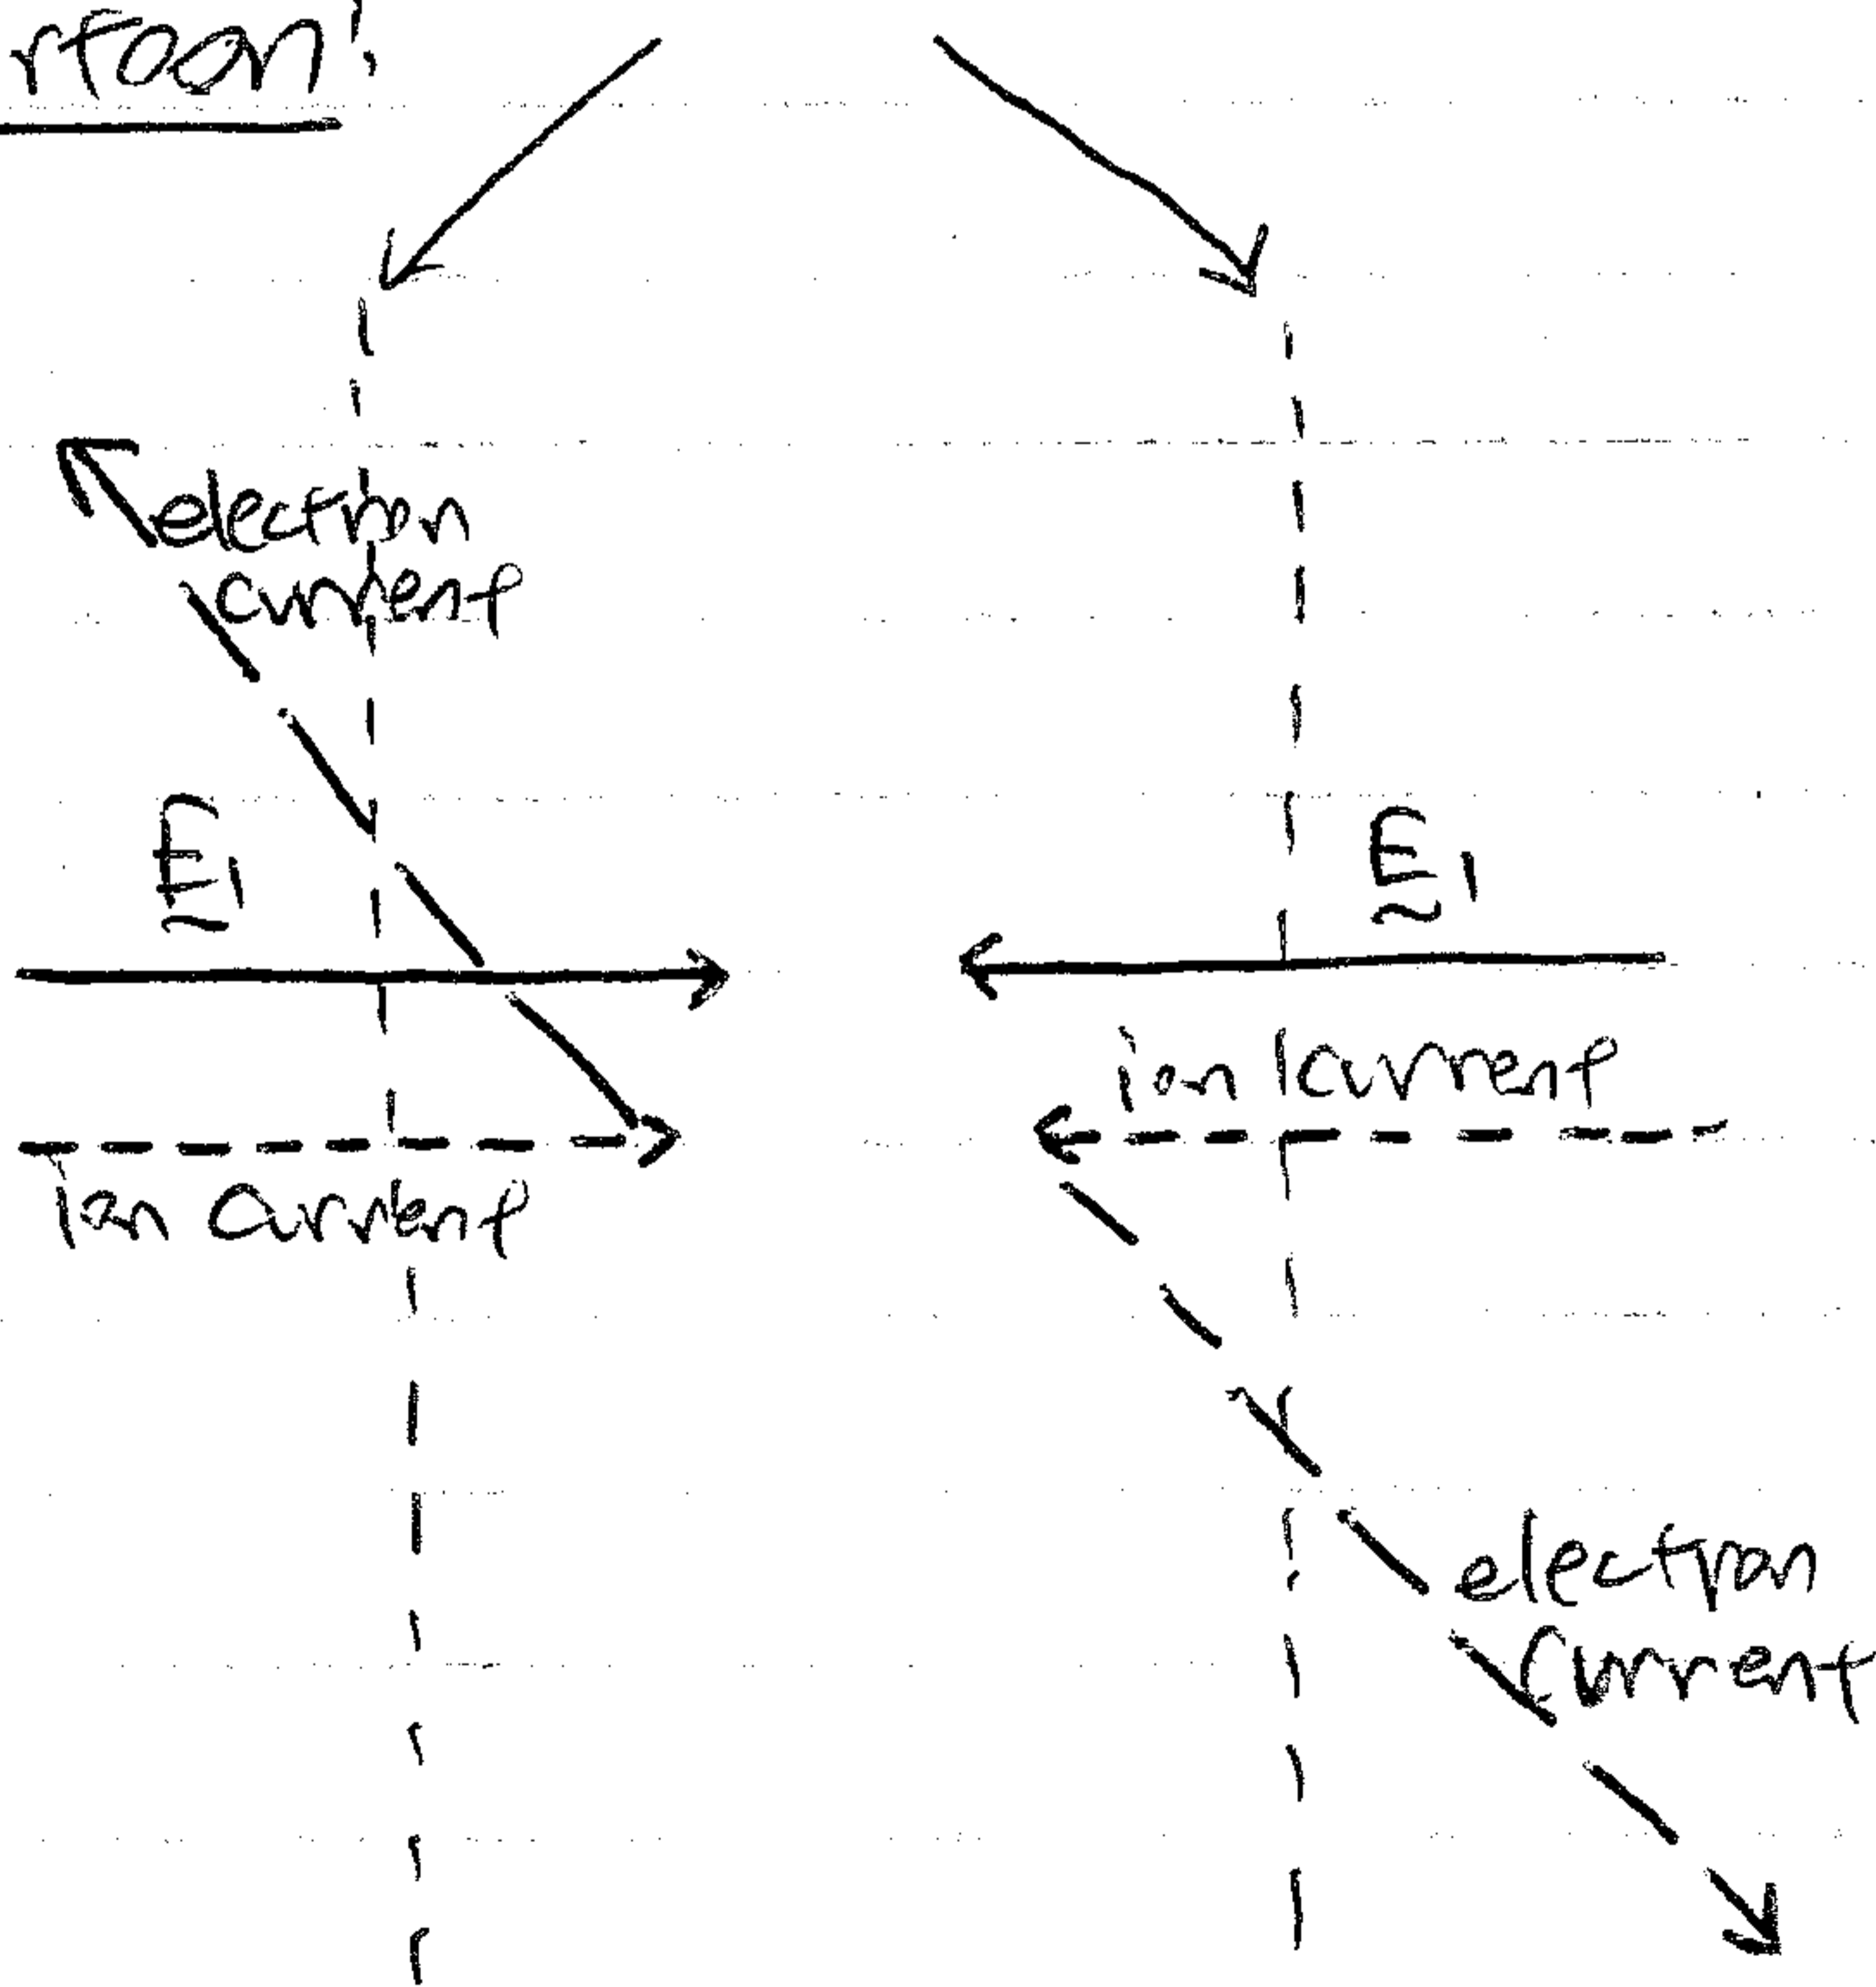 rtoon:
electron
current
E1
E1
ion current
ion current
electron
current